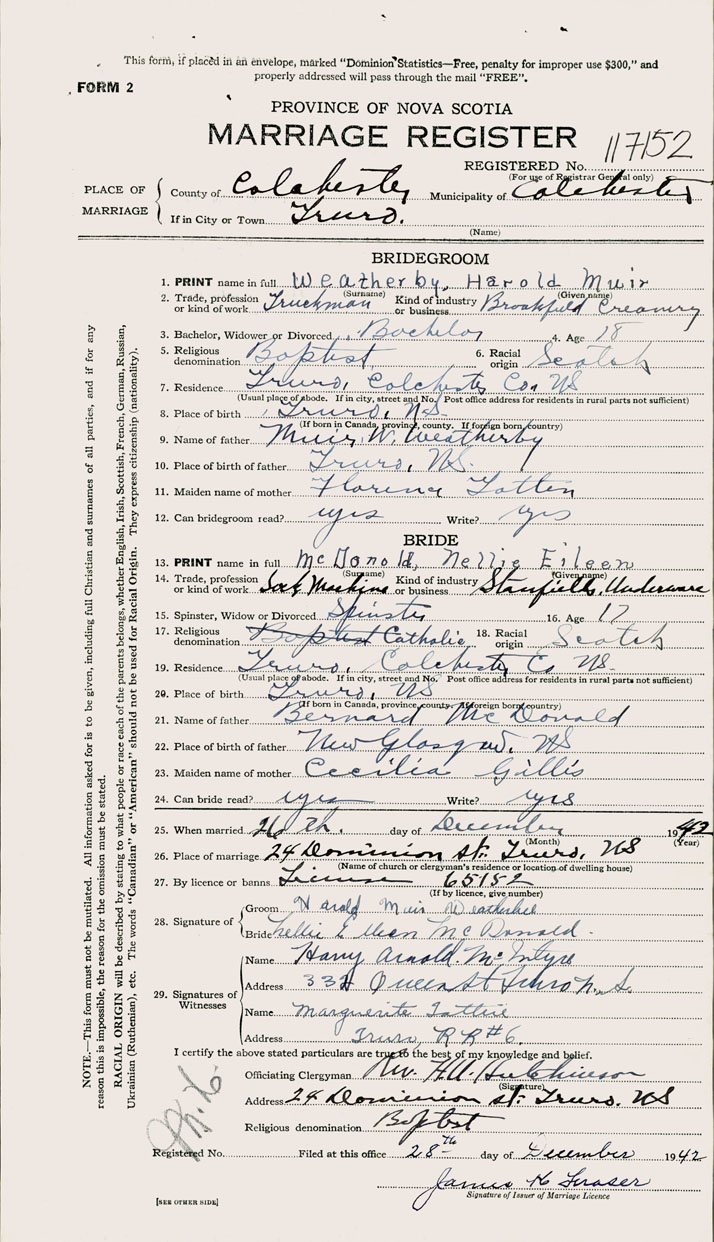 This form, if placed in an envelope, marked "Dominion Statistics—Free, penalty for improper use $300," and
properly addressed will pass through the mail "FREE".
FORM 2
PROVINCE OF NOVA SCOTIA
MARRIAGE REGISTER
117152
REGISTERED No.
(For use of Registrar General only)
PLACE OF MARRIAGE
County of Colchester Municipality of Colchester
If in City or Town Truro.
(Name)
BRIDEGROOM
1. PRINT name in full Weatherby, Harold Muir
(Surname) (Given name)
2. Trade, profession or kind of work Truckman Kind of industry or business Brookfield Creamery
3. Bachelor, Widower or Divorced Bachelor 4. Age 18
5. Religious denomination Baptist 6. Racial origin Scotch
7. Residence Truro, Colchester Co. NS
(Usual place of abode. If in city, street and No. Post office address for residents in rural parts not sufficient)
8. Place of birth Truro, N.S.
(If born in Canada, province, county. If foreign born, country)
9. Name of father Muir W. Weatherby
10. Place of birth of father Truro, NS.
11. Maiden name of mother Florence Totten
12. Can bridegroom read? yes Write? yes
BRIDE
13. PRINT name in full McDonald, Nellie Eileen
(Surname) (Given name)
14. Trade, profession or kind of work Sock Machine Kind of industry or business Stanfields, Underware
15. Spinster, Widow or Divorced Spinster 16. Age 17
17. Religious denomination Baptist Catholic 18. Racial origin Scotch
19. Residence Truro, Colchester Co NS.
(Usual place of abode. If in city, street and No. Post office address for residents in rural parts not sufficient)
20. Place of birth Truro, NS
(If born in Canada, province, county. If foreign born, country)
21. Name of father Bernard McDonald
22. Place of birth of father New Glasgow, NS
23. Maiden name of mother Cecilia Gillis
24. Can bride read? yes Write? yes
25. When married 26th. day of December 1942
(Month) (Year)
26. Place of marriage 24 Dominion st. Truro, NS
(Name of church or clergyman's residence or location of dwelling house)
27. By licence or banns License 65182
(If by licence, give number)
28. Signature of
Groom Harold Muir
Bride Nellie Eileen McDonald.
29. Signatures of Witnesses
Name Harry Arnold McIntyre
Address Queen St Truro N.S.
Name Marguerite
Address Truro, RR#6.
I certify the above stated particulars are true to the best of my knowledge and belief.
Officiating Clergyman Rev. H.A. Hutchinson
(Signature)
Address 24 Dominion st. Truro. NS
Religious denomination Baptist
Registered No. Filed at this office 28th day of December 1942
James K Fraser
Signature of Issuer of Marriage Licence
[SEE OTHER SIDE]
NOTE.—This form must not be mutilated. All information asked for is to be given, including full Christian and surnames of all parties, and if for any
reason this is impossible, the reason for the omission must be stated.
RACIAL ORIGIN will be described by stating to what people or race each of the parents belongs, whether English, Irish, Scottish, French, German, Russian,
Ukrainian (Ruthenian), etc. The words "Canadian" or "American" should not be used for Racial Origin. They express citizenship (nationality).